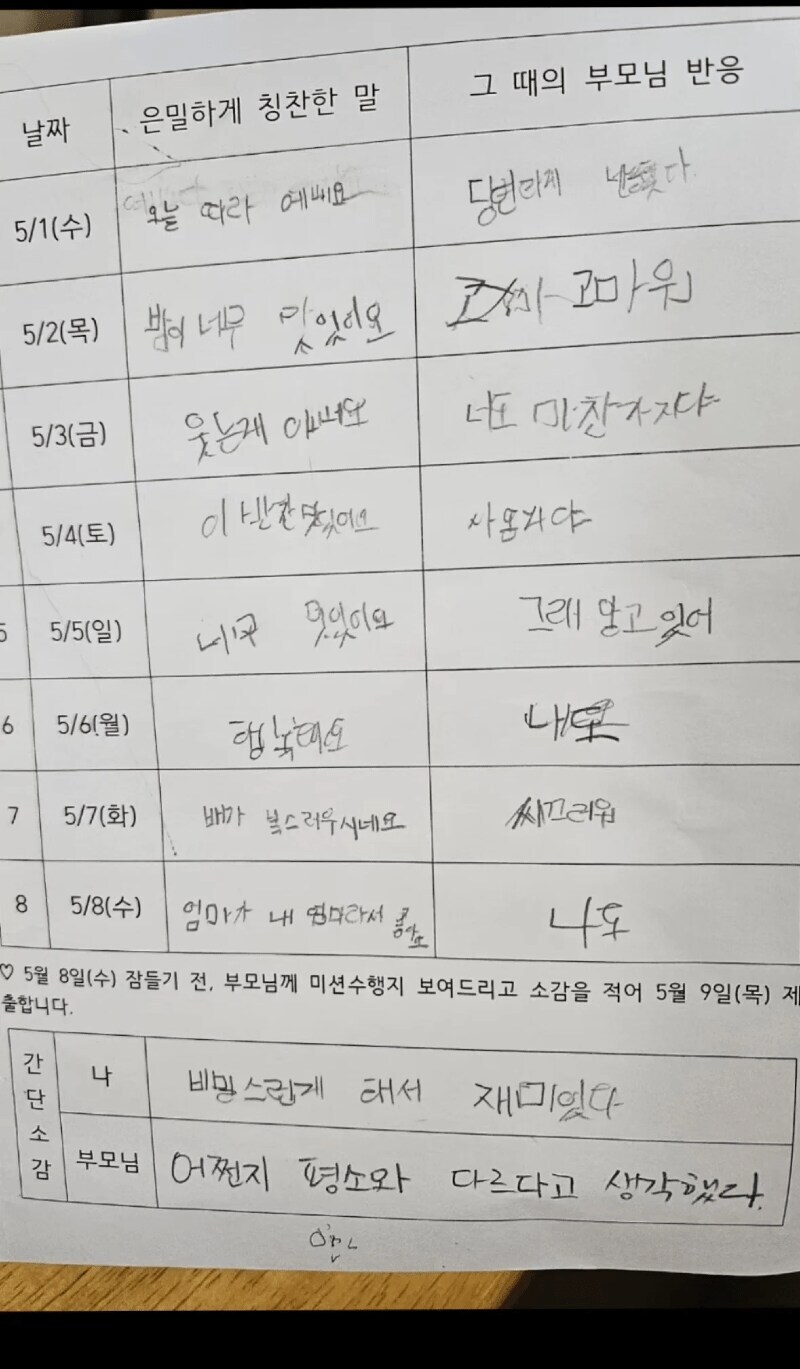 날짜 은밀하게 칭찬한 말 그 때의 부모님 반응
5/1(수) 오늘 따라 예뻐요
5/2(목) 밥이 너무 맛있어요 고마워
5/3(금) 웃는게 너도 마찬가지야
5/4(토) 이 반찬 맛있어요
5 5/5(일) 그래 알고 있어
6 5/6(월) 행복해요
7 5/7(화) 배가 복스러우시네요 씨끄러워
8 5/8(수) 엄마가 내 엄마라서 좋아요 나도
♡ 5월 8일(수) 잠들기 전, 부모님께 미션수행지 보여드리고 소감을 적어 5월 9일(목) 제
출합니다.
간단소감 나 비밍스런게 해서 재미있다
부모님 어쩐지 평소와 다르다고 생각했다.